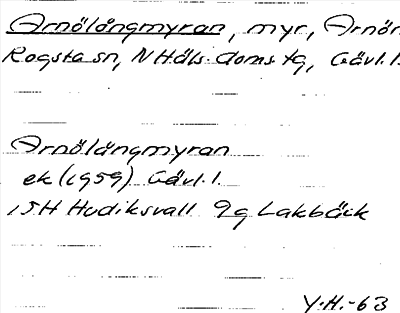 Arnölångmyran, myr, Arnön
Rogsta sn, N Häls. doms. tg, Gävl. l.
Arnölångmyran
ek (1959) Gävl. l.
15H Hudiksvall 9g Lakbäck
Y.H.-63